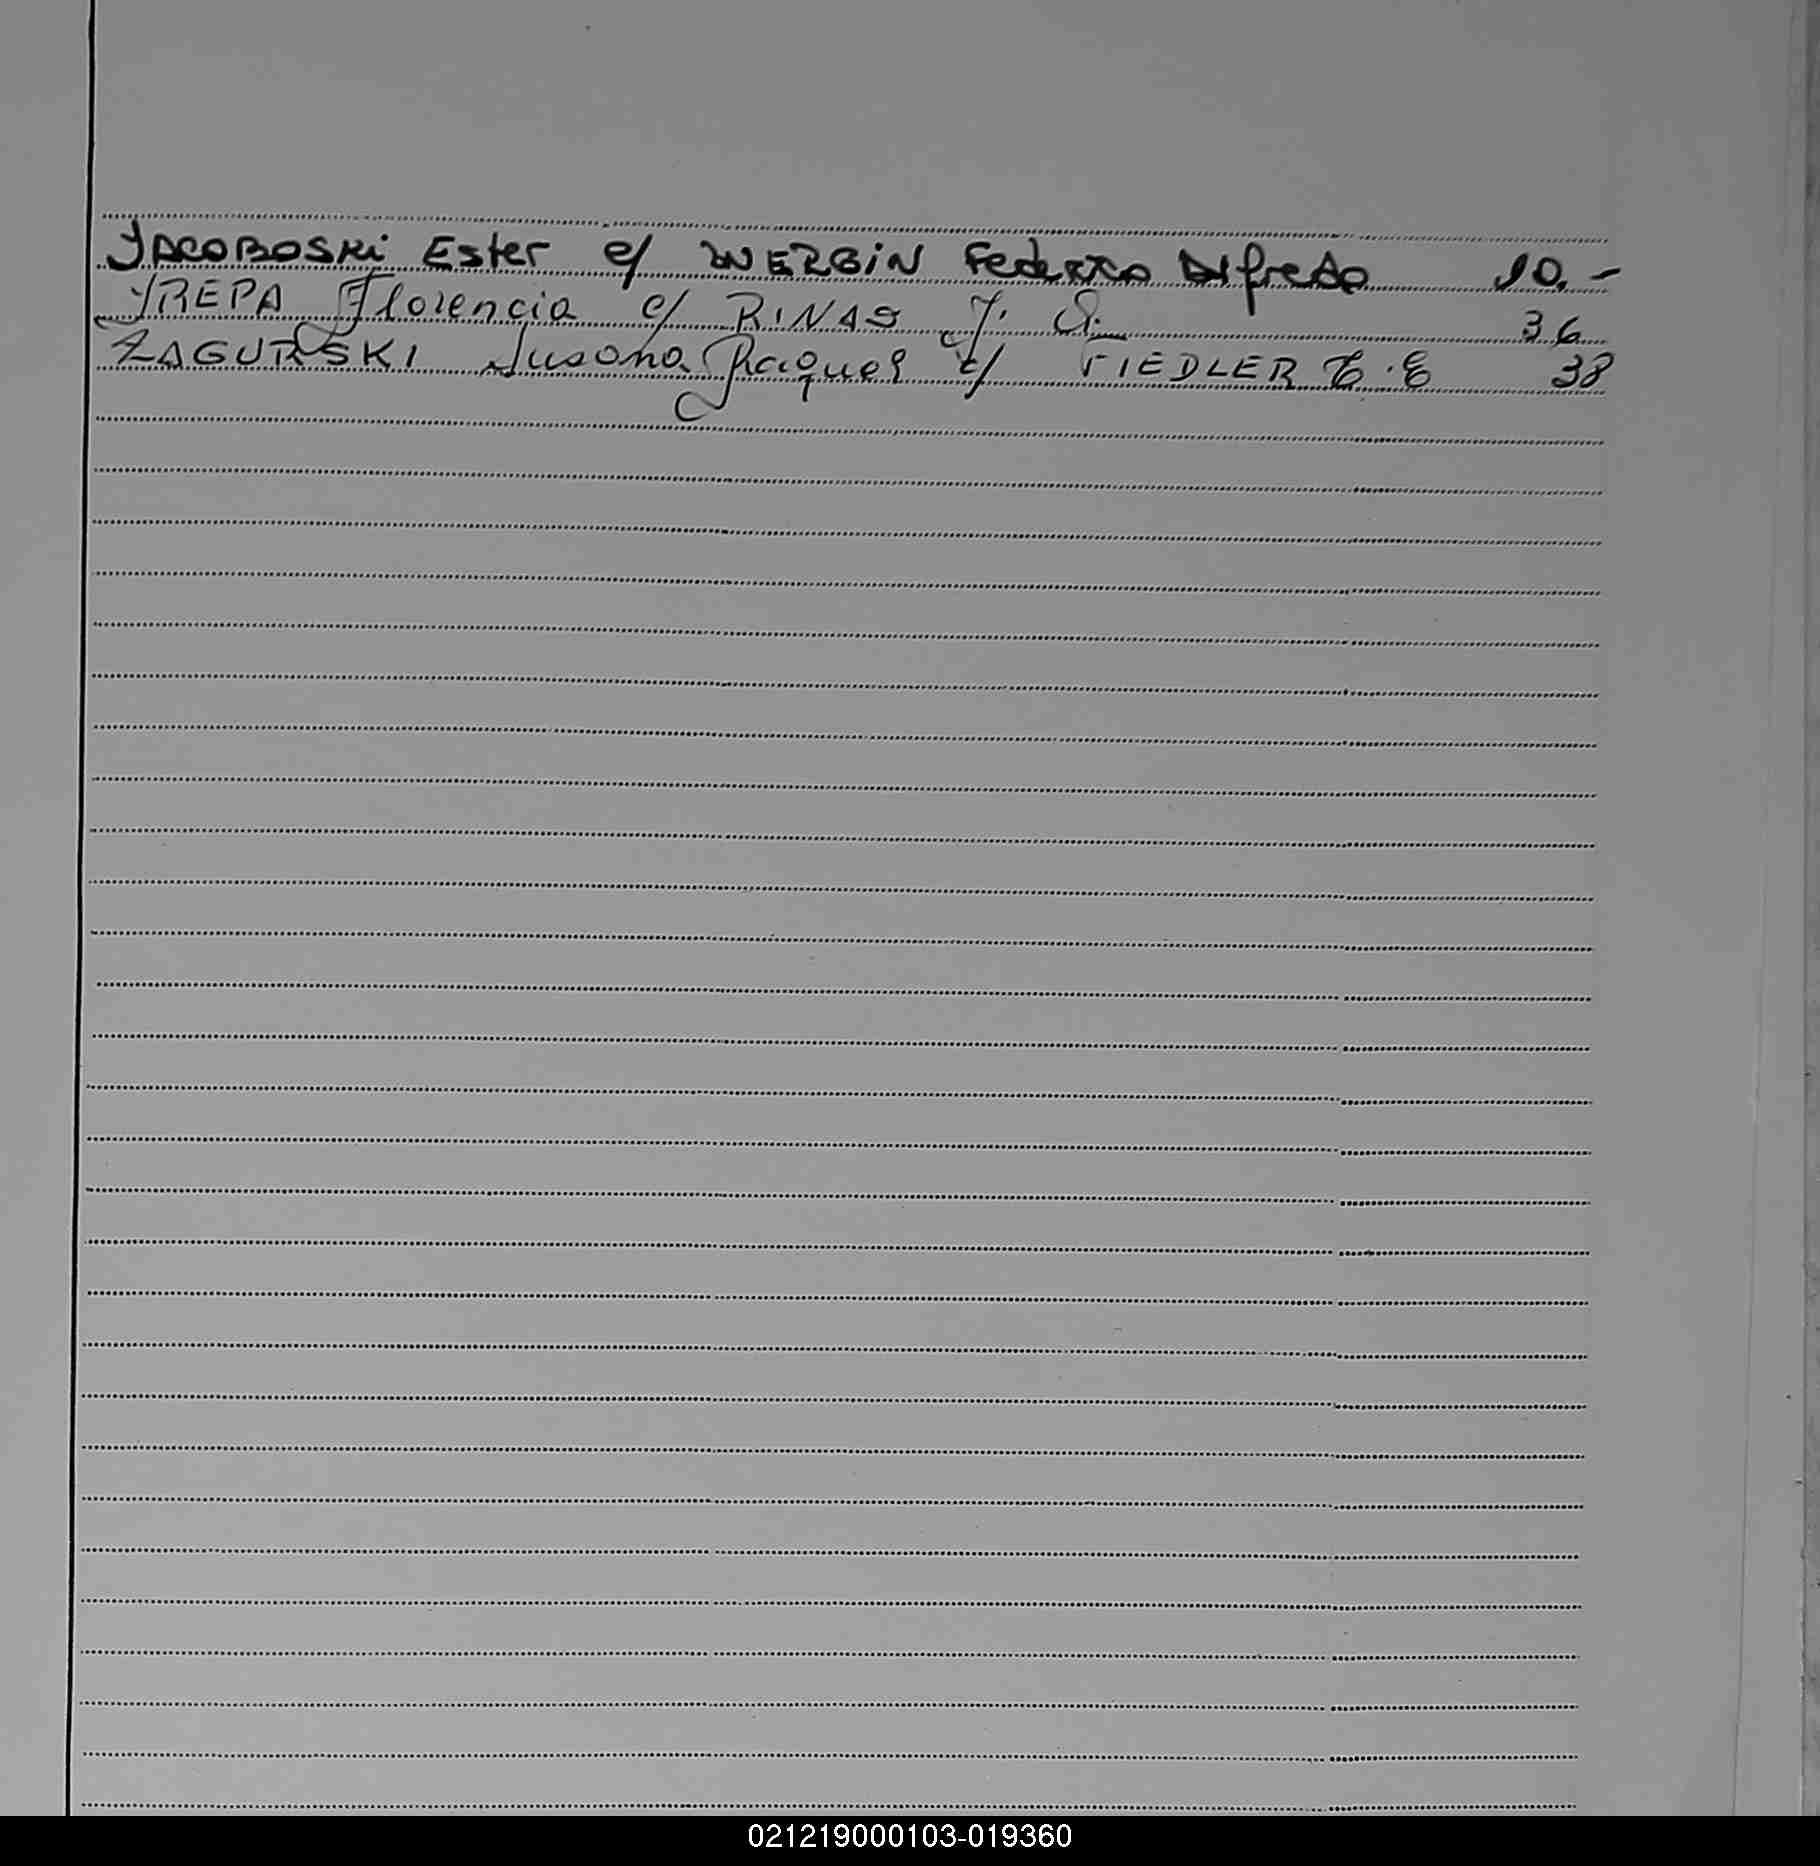 YACOBOSKI Ester c/ WERBIN Federico Alfredo 10.-
YREPA Florencia c/ RINAS J. A. 36
ZAGURSKI Susana Raquel c/ FIEDLER E. E 38
021219000103-019360